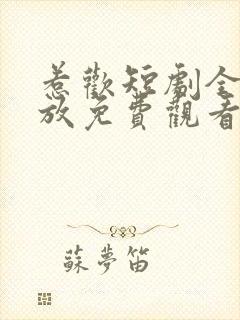 惹歡短劇全
放免費觀看
蘇夢笛